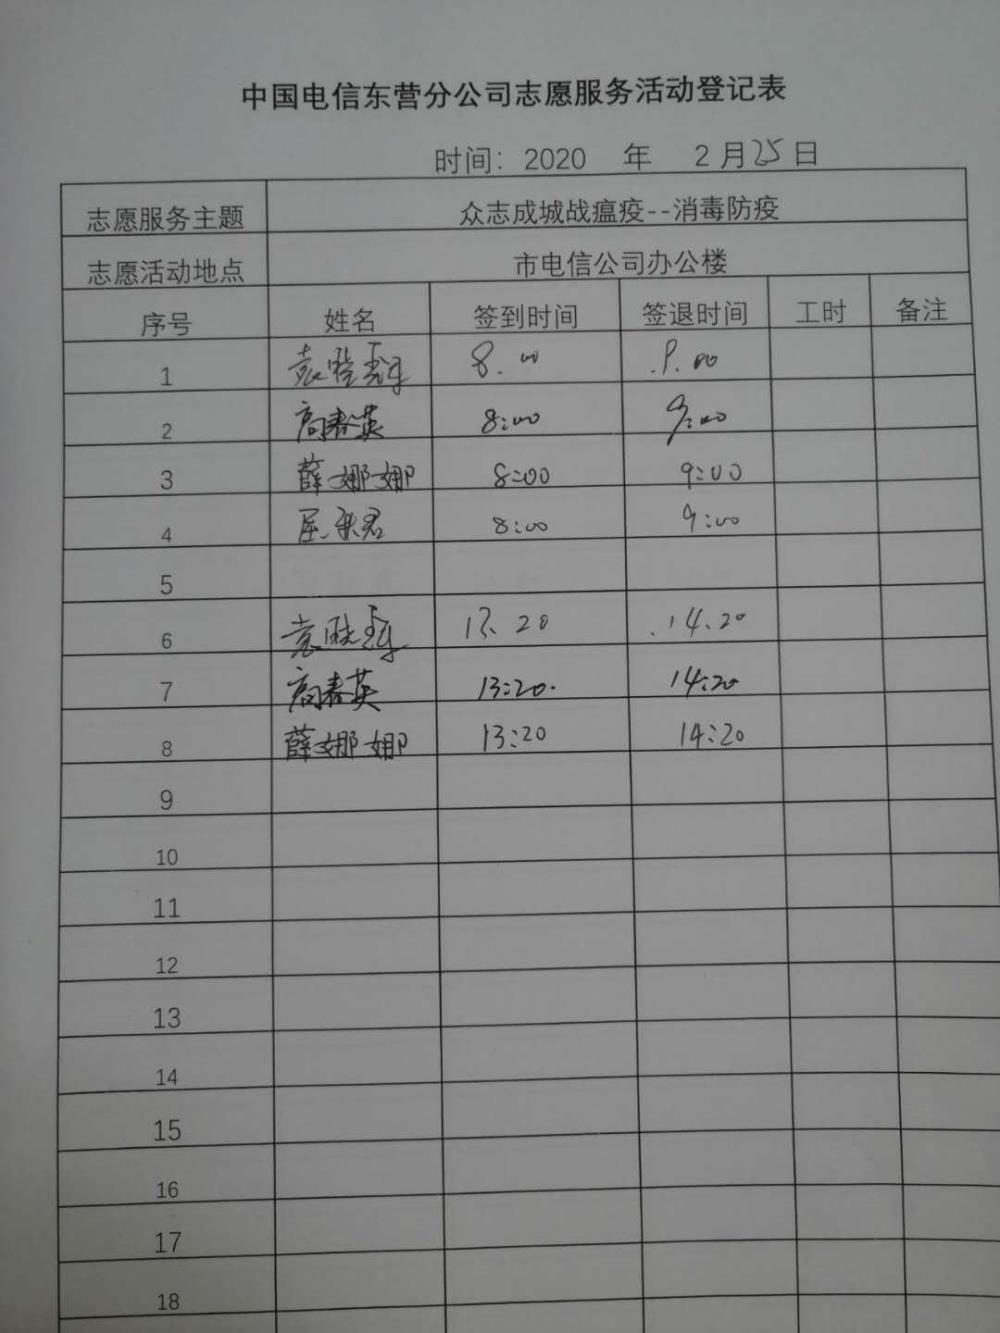 中国电信东营分公司志愿服务活动登记表
时间：2020 年 2月25日
志愿服务主题 众志成城战瘟疫--消毒防疫
志愿活动地点 市电信公司办公楼
序号 姓名 签到时间 签退时间 工时 备注
1 袁 8.00 9.00
2 高春英 8:00 9:00
3 薛娜娜 8:00 9:00
4 君 8:00 9:00
5
6 袁 13.20 14.20
7 高春英 13:20. 14:20
8 薛娜娜 13:20 14:20
9
10
11
12
13
14
15
16
17
18